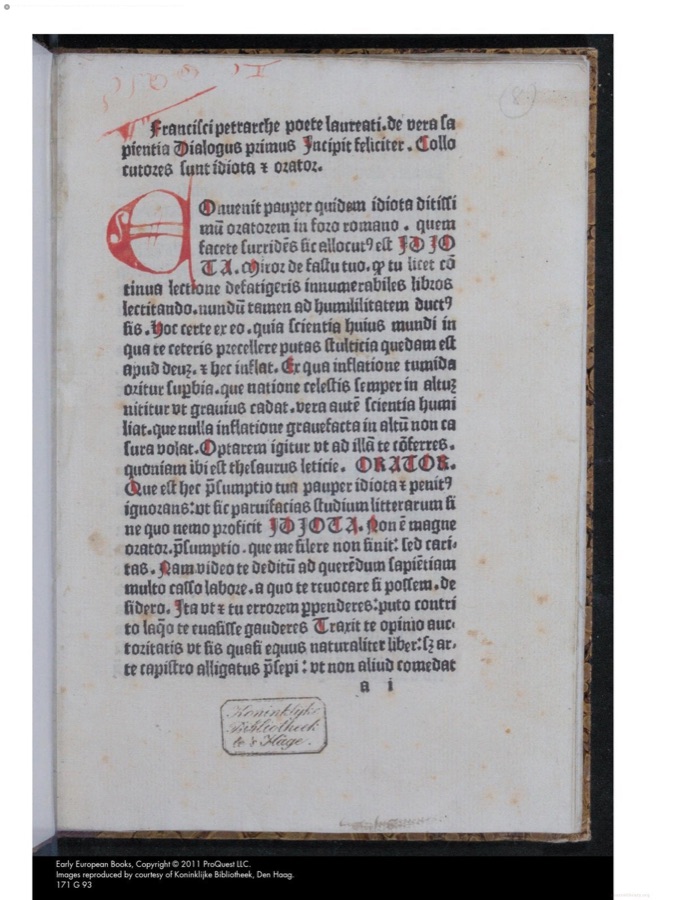 Francisci petrarche poete laureati.de vera sa
pientia Dialogus primus Incipit feliciter. Collo
cutores sunt idiota ⁊ orator.
COnuenit pauper quidem idiota ditissi
mū oratorem in foro romano. quem
facete surridēs sic allocutꝰ est IDIO
TA. Miror de fastu tuo. ꝙ tu licet cō
tinua lectione defatigeris innumerabiles libros
lectitando.nundū tamen ad humililitatem ductꝰ
sis. Hoc certe ex eo. quia scientia huius mundi in
qua te ceteris precellere putas stulticia quedam est
apud deuꝫ. ⁊ hec inflat. Ex qua inflatione tumida
oritur suꝑbia. que natione celestis semper in altuꝫ
nititur vt grauius cadat. vera autē scientia humi
liat.que nulla inflatione grauefacta in altū non ca
sura volat. Optarem igitur vt ad illā te cōferres.
quoniam ibi est thesaurus leticie. ORATOR.
Que est hec p̄sumptio tua pauper idiota ⁊ penitꝰ
ignorans: vt sic paruifacias studium litterarum si
ne quo nemo proficit IDIOTA. Non ē magne
orator. p̄sumptio. que me silere non sinit: sed cari-
tas. Nam video te deditū ad querēdum sapiētiam
multo casso labore. a quo te reuocare si possem. de
sidero. Ita vt ⁊ tu errorem ꝑpenderes: puto contri
to laq̄o te euasisse gauderes Traxit te opinio auc-
toritatis vt sis quasi equus naturaliter liber: sꝫ ar-
te capistro alligatus p̄sepi: vt non aliud comedat
a i
Koninklijke
Bibliotheek
te 's Hage.
Early European Books, Copyright © 2011 ProQuest LLC.
Images reproduced by courtesy of Koninklijke Bibliotheek, Den Haag.
171 G 93